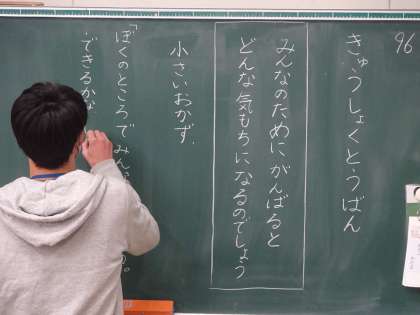 96
きゅうしょくとうばん
みんなのために がんばると
どんな気もちになるのでしょう
小さいおかず.
「ぼくのところで みん
できるかな